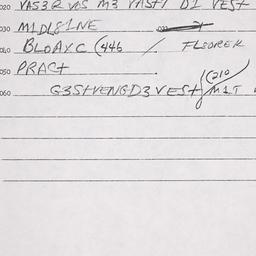 020 VAS3R VOS M3 YAST/ D1 VEST
030 M1DL81NE
040 BLOAYC (446 / FLSOREK
050 PRACT
(210
060 G3STVENGD3 VEST/M1T